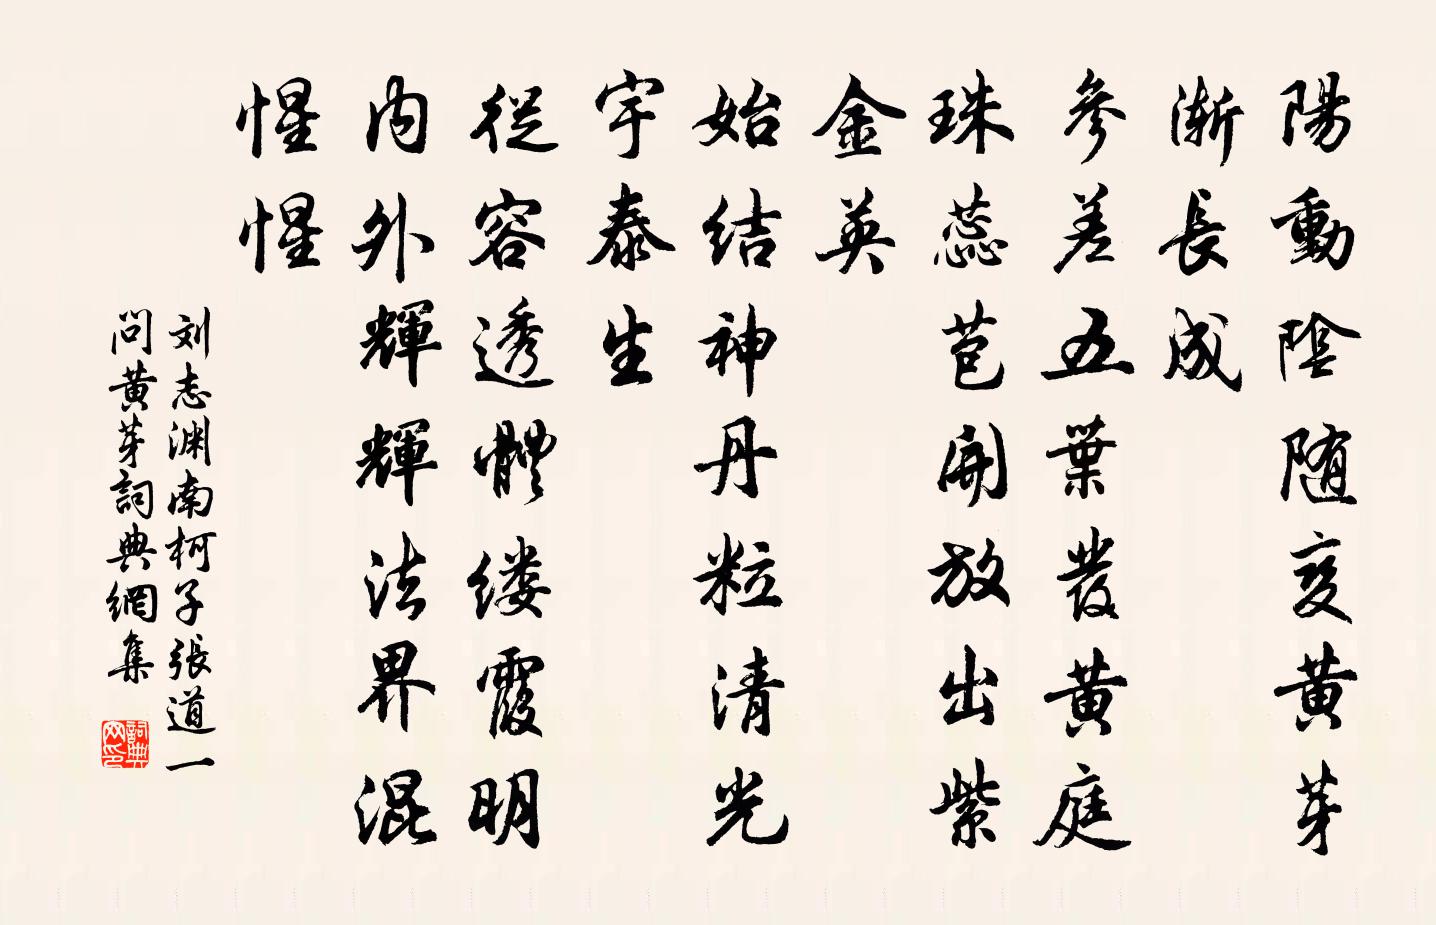 陽動陰随变黄芽
漸長成
參差五葉發黄庭
珠蕊苞開放出紫
金英
始结神丹粒清光
宇泰生
從容透體缕霞明
内外輝輝法界混
惺惺
刘志渊南柯子張道一
問黄芽詞典網集
詞典
网印